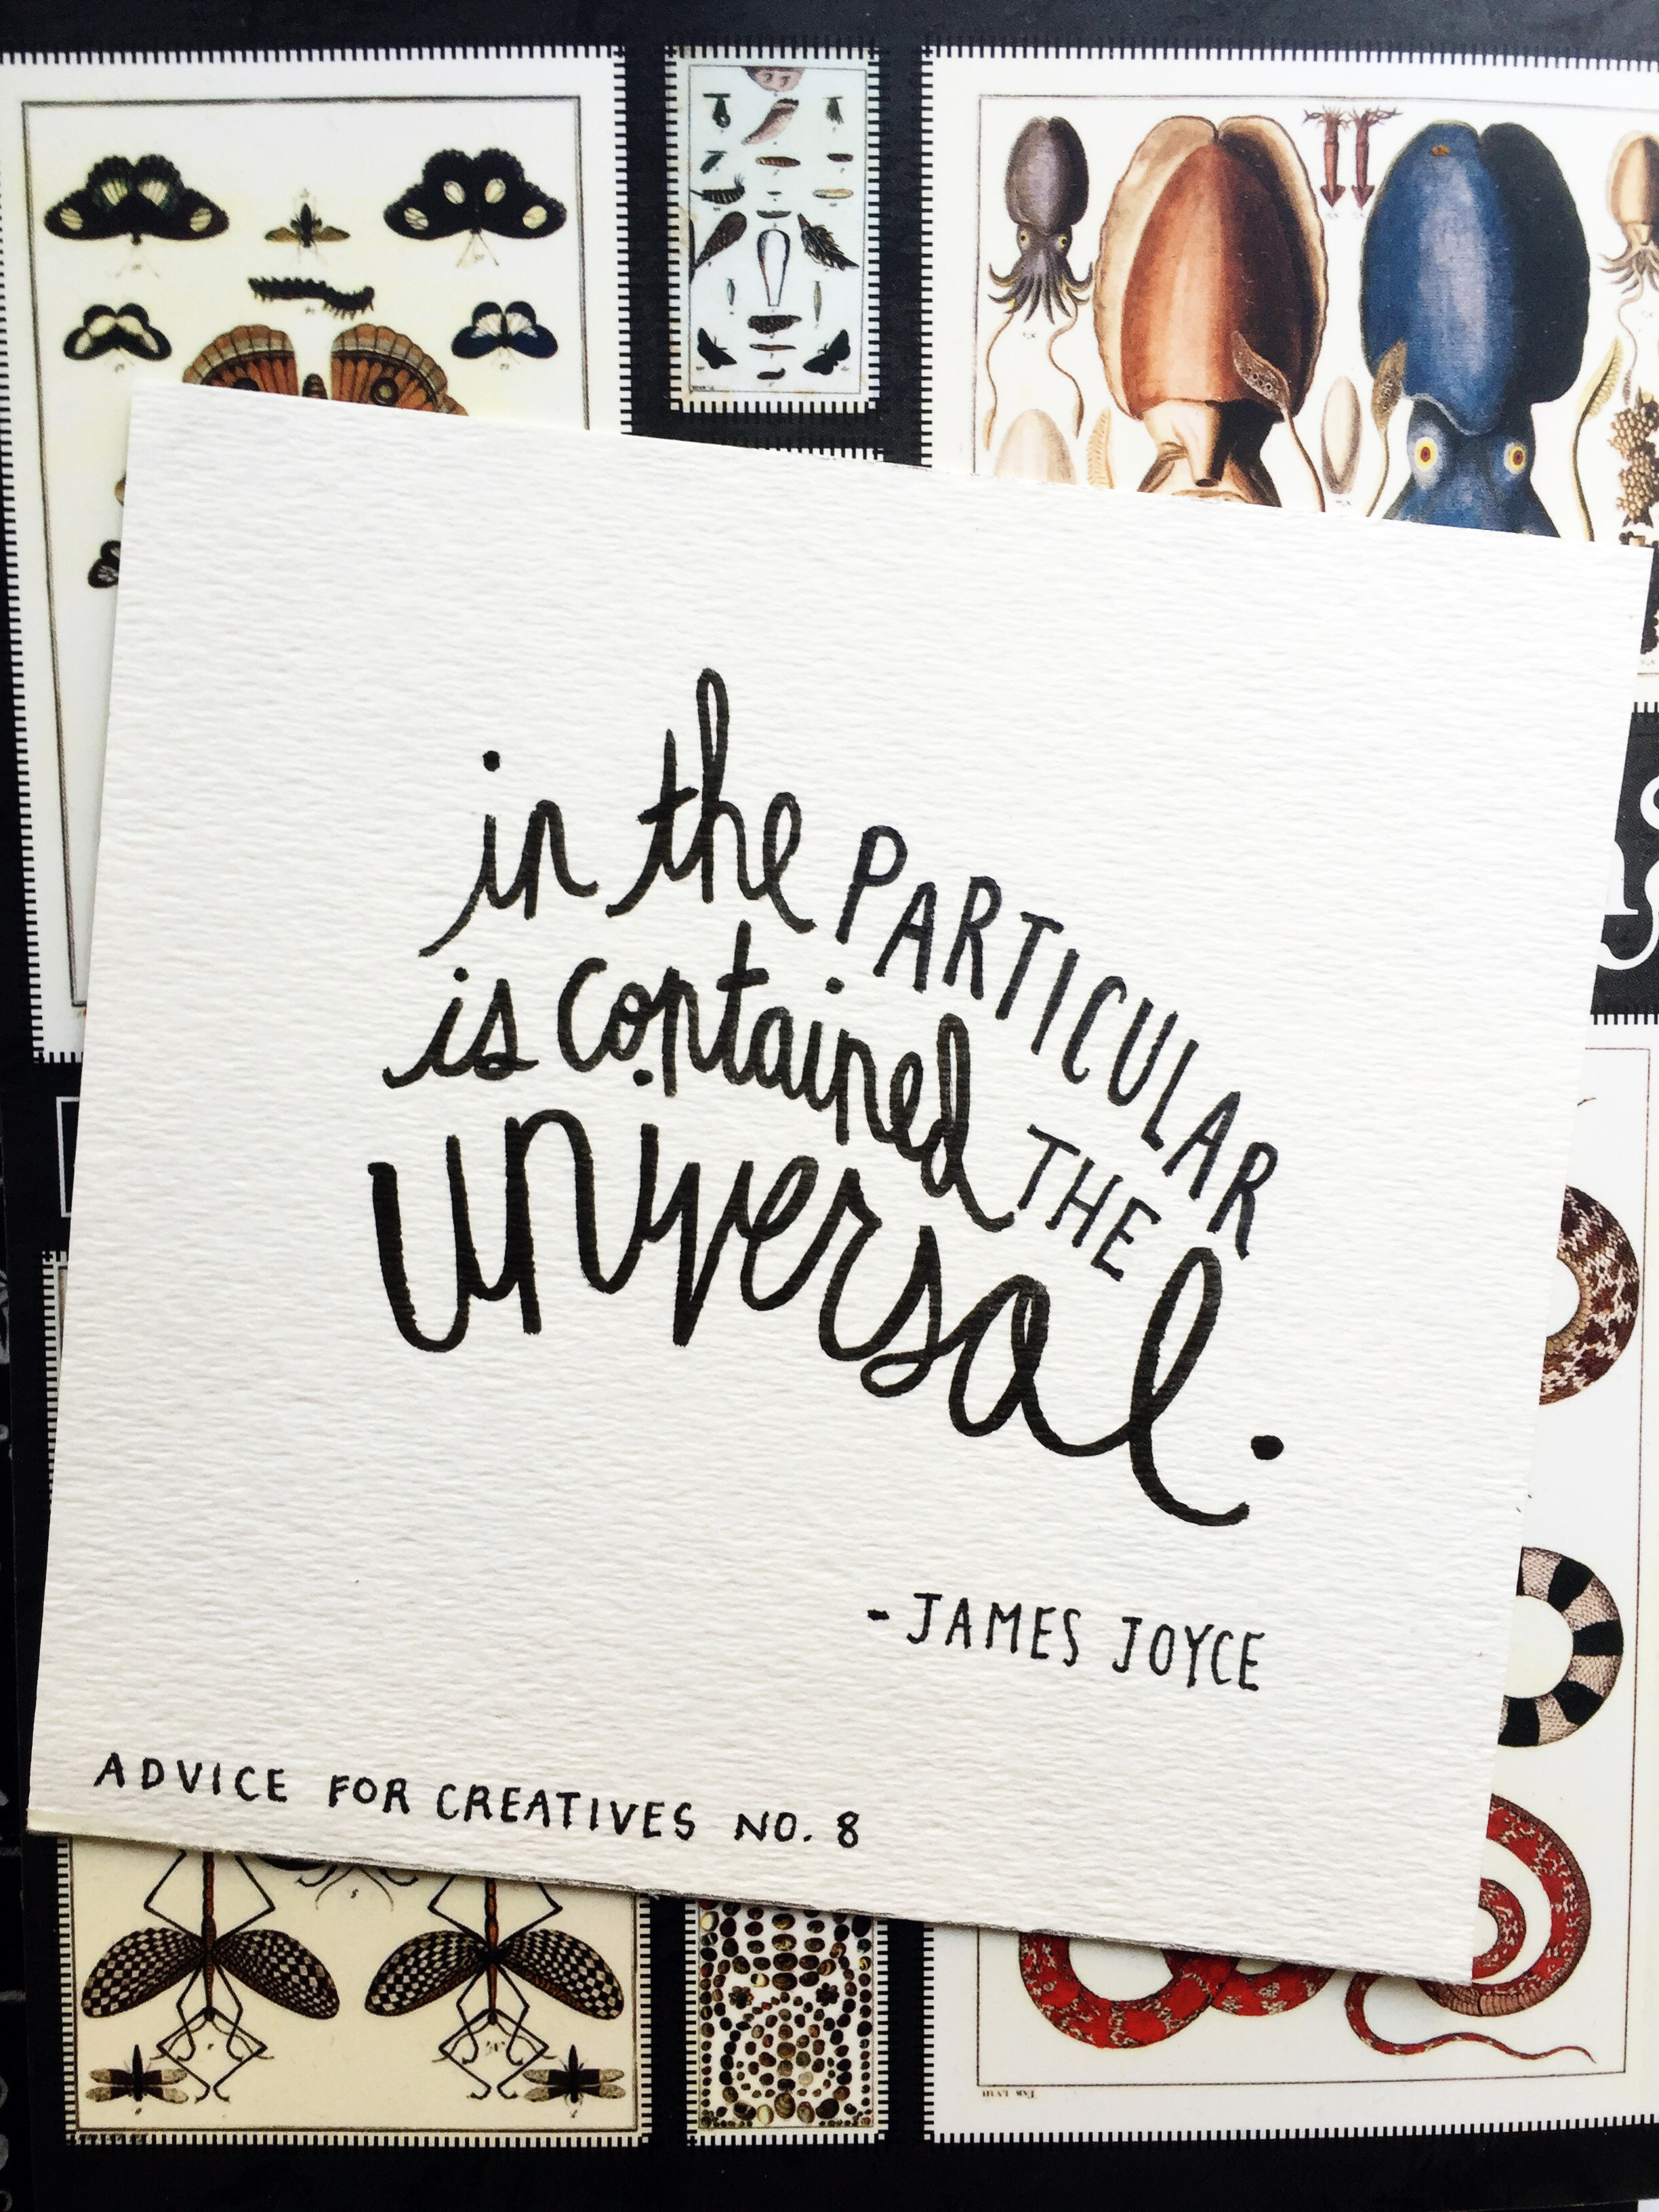 in the PARTICULAR
is contained THE
universal.
-JAMES JOYCE
ADVICE FOR CREATIVES NO. 8